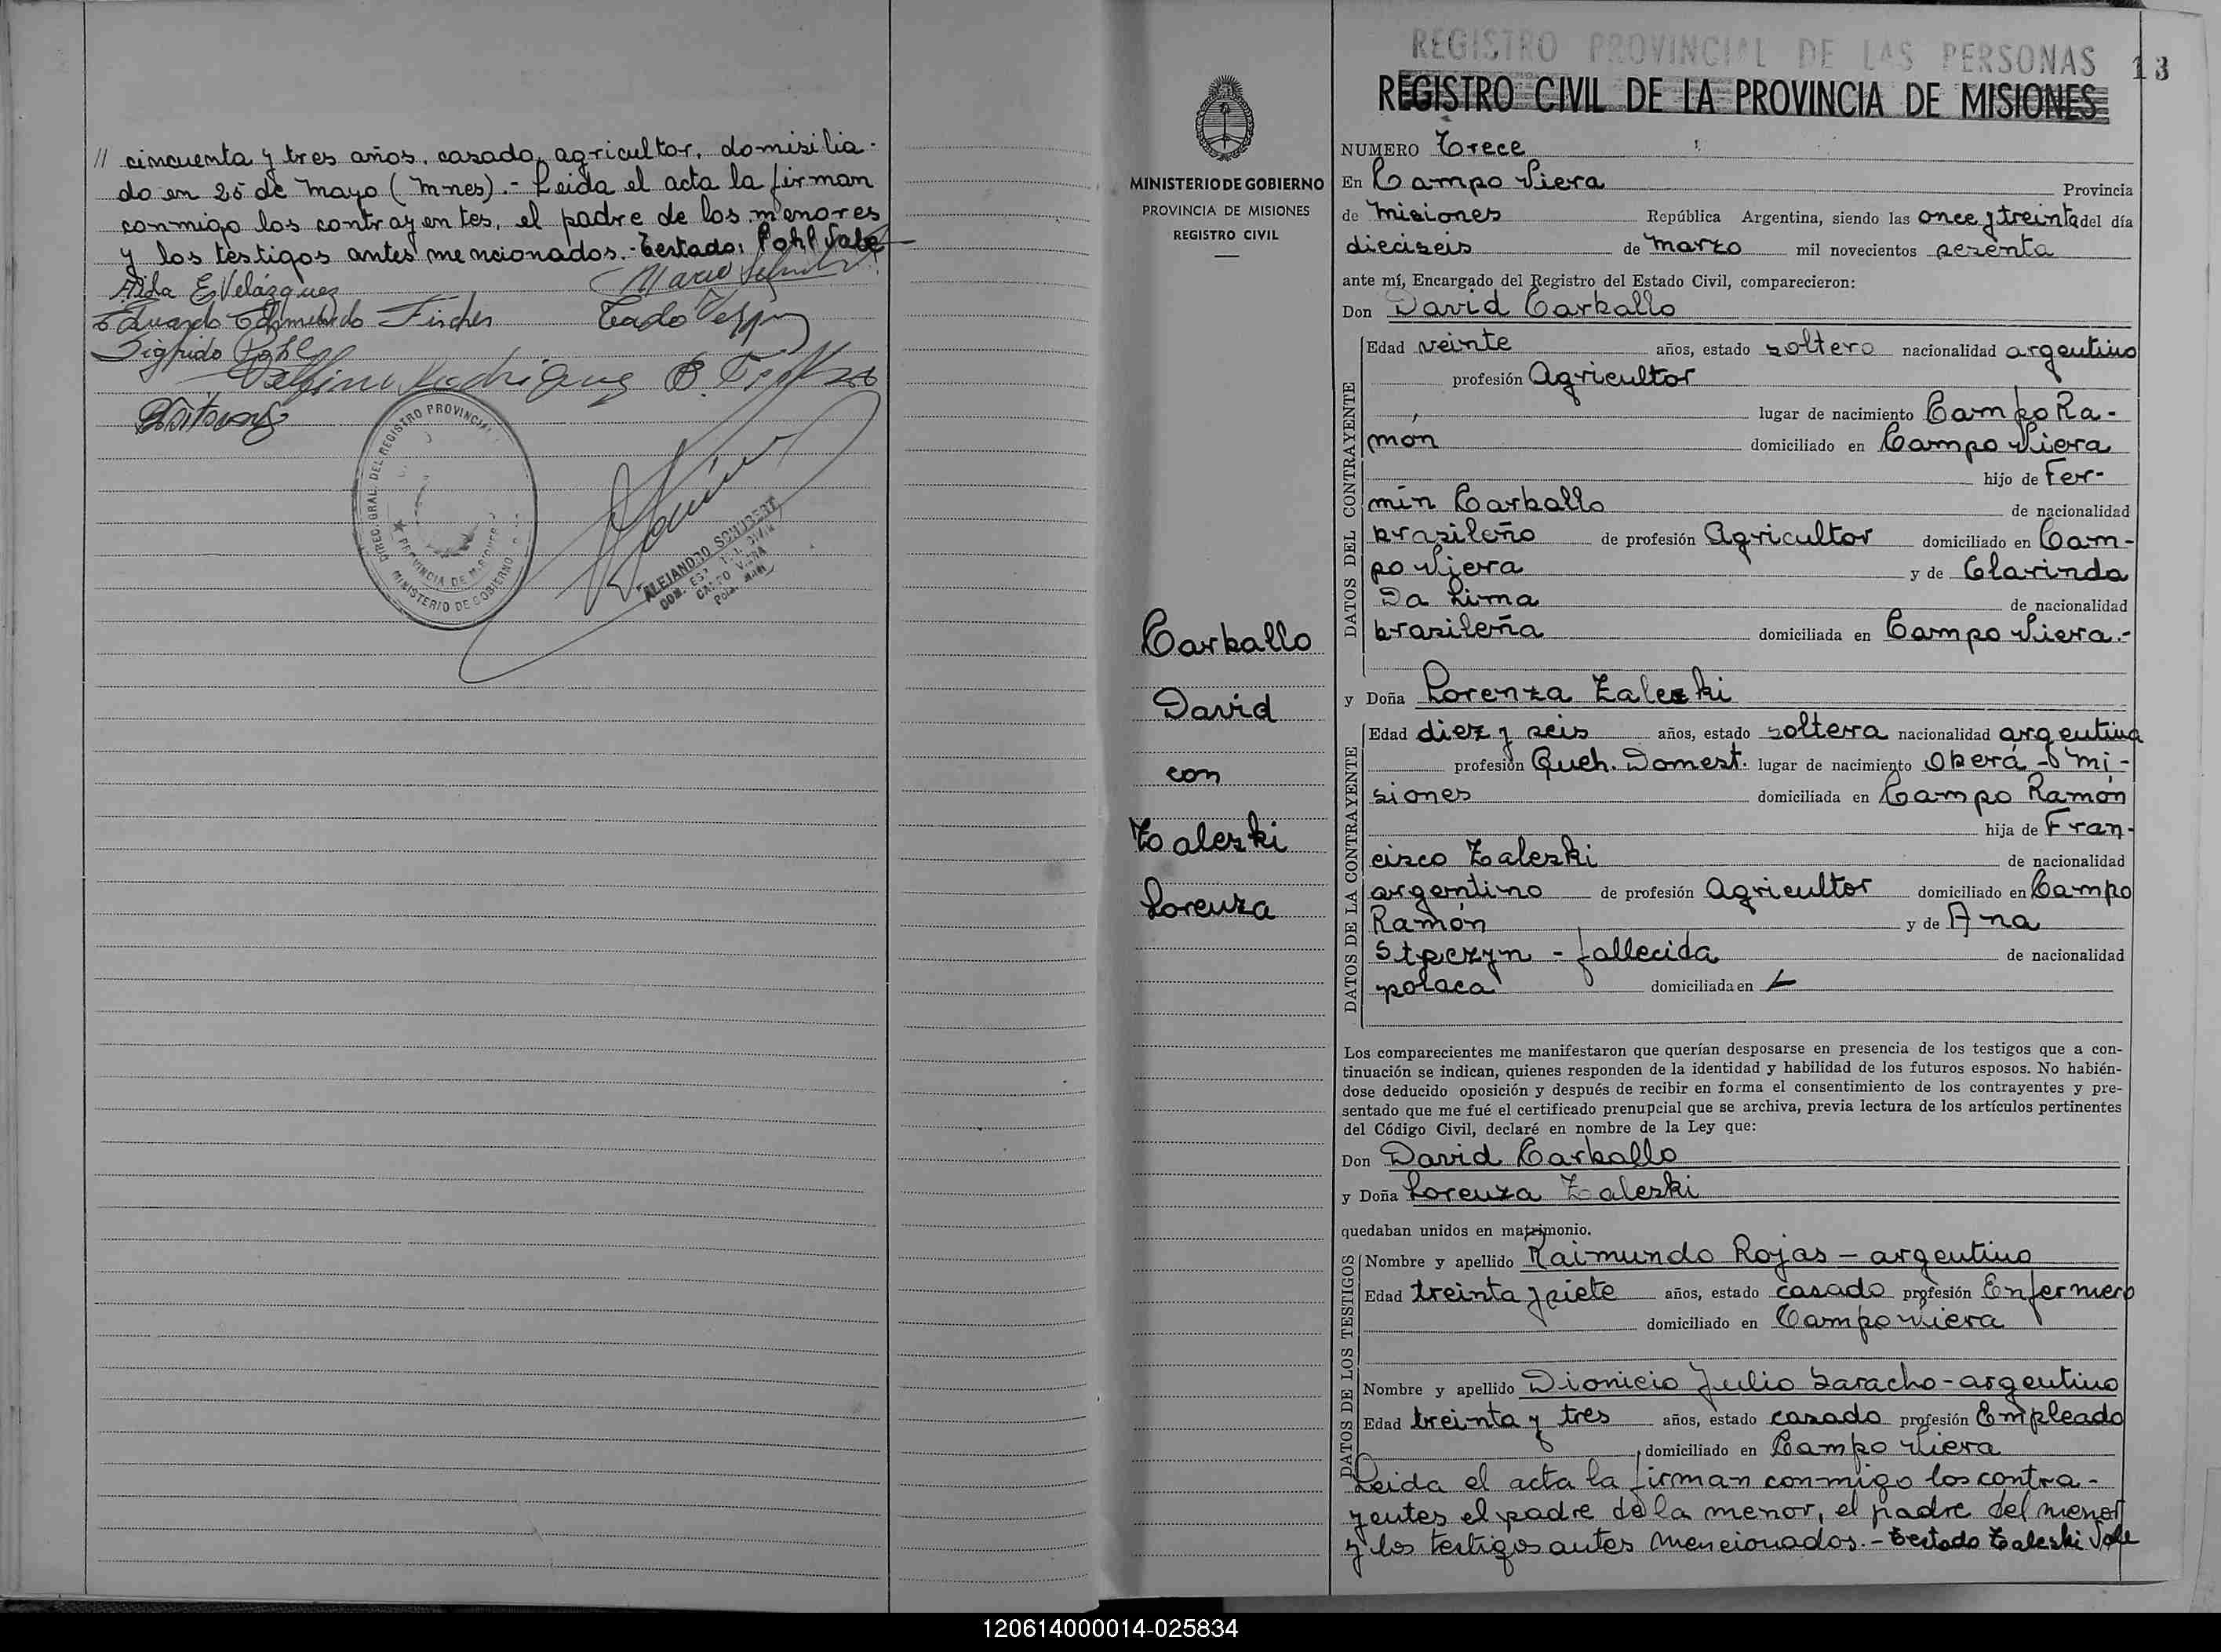 // cincuenta y tres años, casado, agricultor, domisilia-
do en 25 de Mayo (Mnes).- Leida el acta la firman
conmigo los contrayentes, el padre de los menores
y los testigos antes mencionados.- Testado: Pohl Vale
Aida E Velázquez
Eduardo Fischer
Sigfrido Pohl
DIREC. GRAL. DEL REGISTRO PROVINCIAL
PROVINCIA DE MISIONES
MINISTERIO DE GOBIERNO
ALEJANDRO SCHUBERT
MINISTERIO DE GOBIERNO
PROVINCIA DE MISIONES
REGISTRO CIVIL
Carballo
David
con
Zaleski
Lorenza
REGISTRO PROVINCIAL DE LAS PERSONAS
13
REGISTRO CIVIL DE LA PROVINCIA DE MISIONES
NUMERO Trece
En Campo Viera Provincia
de Misiones República Argentina, siendo las once y treinta del día
dieciseis de Marzo mil novecientos sesenta
ante mí, Encargado del Registro del Estado Civil, comparecieron:
Don David Carballo
DATOS DEL CONTRAYENTE
Edad veinte años, estado soltero nacionalidad argentino
profesión Agricultor
lugar de nacimiento Campo Ra-
món domiciliado en Campo Viera
hijo de Fer-
min Carballo de nacionalidad
brasileño de profesión Agricultor domiciliado en Cam-
po Viera y de Clarinda
Da Lima de nacionalidad
brasileña domiciliada en Campo Viera.-
y Doña Lorenza Zaleski
DATOS DE LA CONTRAYENTE
Edad diez y seis años, estado soltera nacionalidad argentina
profesión Queh. Domest. lugar de nacimiento Oberá - Mi-
siones domiciliada en Campo Ramón
hija de Fran-
cisco Zaleski de nacionalidad
argentino de profesión Agricultor domiciliado en Campo
Ramón y de Ana
Stpezyn - fallecida de nacionalidad
polaca domiciliada en
Los comparecientes me manifestaron que querían desposarse en presencia de los testigos que a con-
tinuación se indican, quienes responden de la identidad y habilidad de los futuros esposos. No habién-
dose deducido oposición y después de recibir en forma el consentimiento de los contrayentes y pre-
sentado que me fué el certificado prenupcial que se archiva, previa lectura de los artículos pertinentes
del Código Civil, declaré en nombre de la Ley que:
Don David Carballo
y Doña Lorenza Zaleski
quedaban unidos en matrimonio.
DATOS DE LOS TESTIGOS
Nombre y apellido Raimundo Rojas - argentino
Edad treinta y siete años, estado casado profesión Enfermero
domiciliado en Campo Viera
Nombre y apellido Dionicio Julio Saracho - argentino
Edad treinta y tres años, estado casado profesión Empleado
domiciliado en Campo Viera
Leida el acta la firman conmigo los contra-
yentes el padre de la menor, el padre del menor
y los testigos antes mencionados.- Testado Zaleski Vale
120614000014-025834